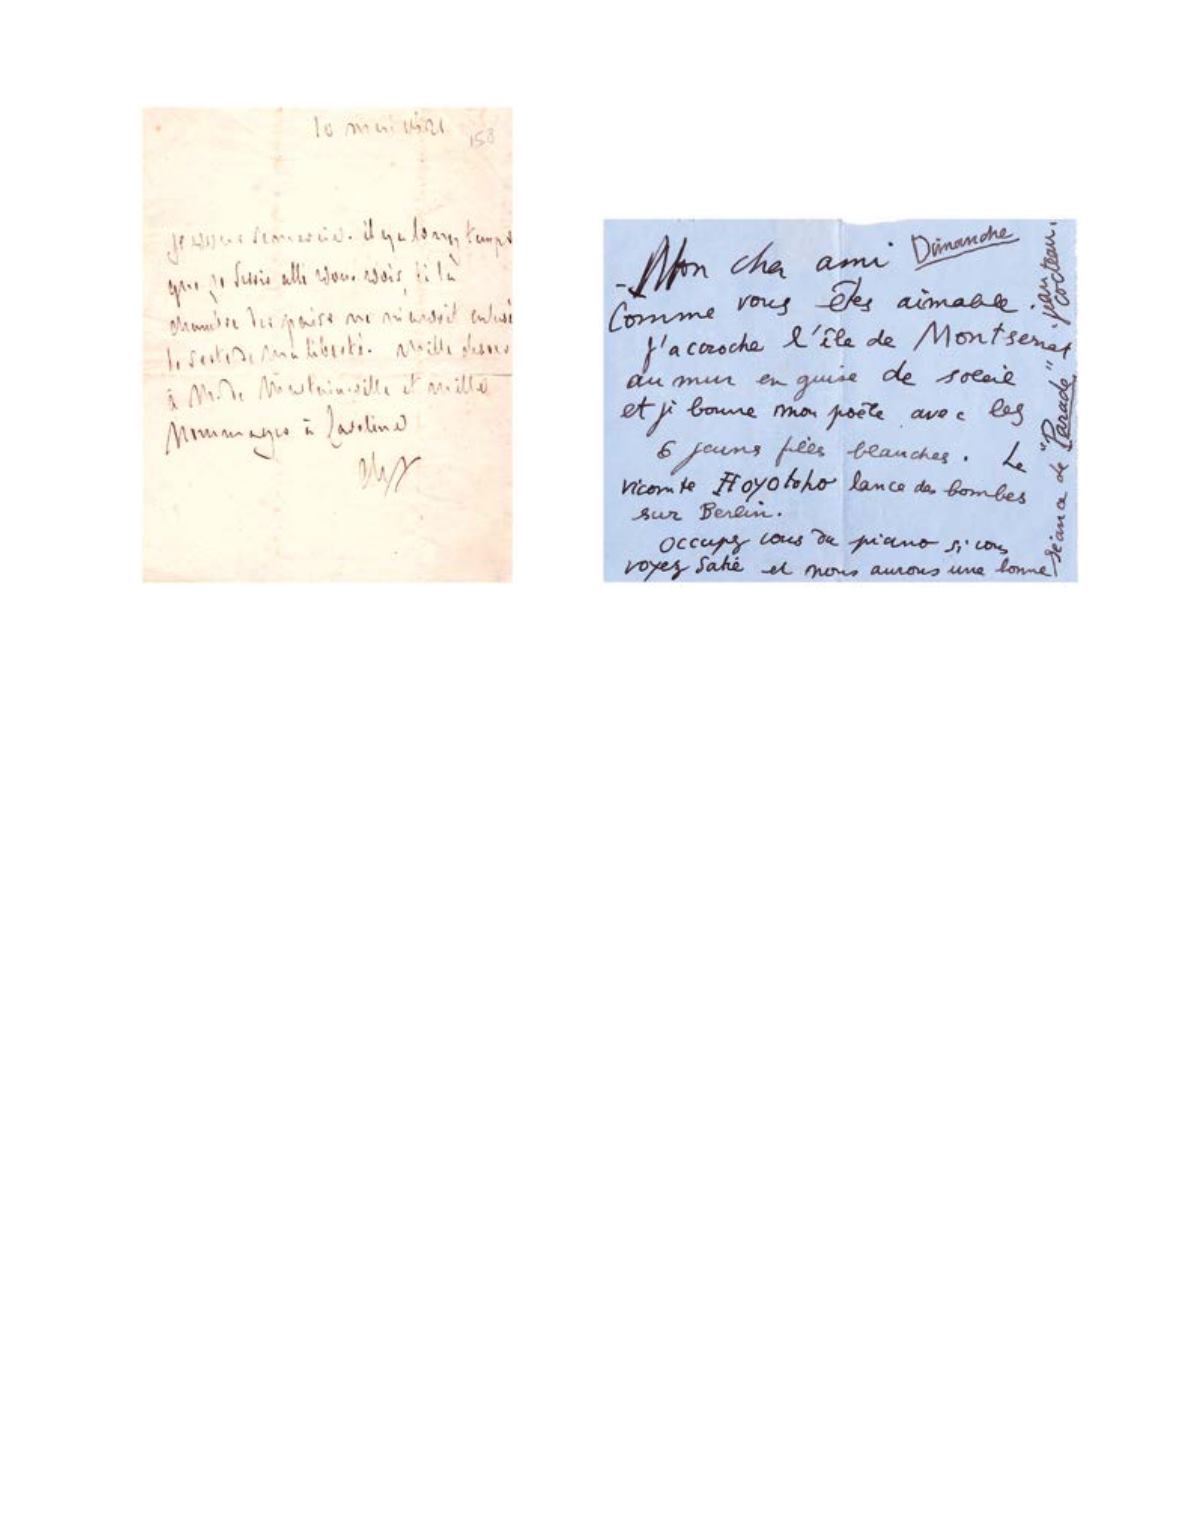 10 mai 1821
158
je vous remercie. il y a longtemps
que je serois allé vous voir, si la
chambre des pairs ne m'avoit enlevé
le reste de ma liberté. Mille choses
à M. de et mille
hommages à
Dimanche
Mon cher ami
Comme vous êtes aimable.
J'accroche l'île de Montserrat
au mur en guise de soleil
et je bourre mon poêle avec les
6 jeunes filles blanches. Le
vicomte Hoyotoho lance des bombes
sur Berlin.
Occupez vous du piano si vous
voyez Satie et nous aurons une bonne
séance de "Parade" Jean
Cocteau.